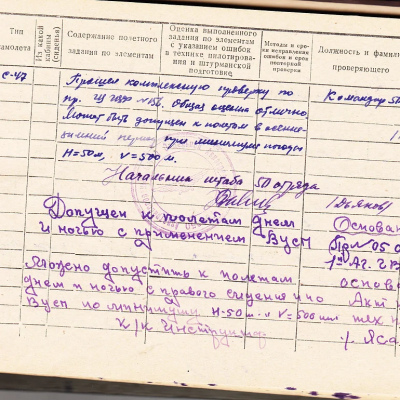 Тип
самолета
Из какой
кабины
(сиденья)
Содержание полетного
задания по элементам
Оценка выполненного
задания по элементам
с указанием ошибок
в технике пилотирова-
ния и штурманской
подготовке
Методы и сро-
ки исправления
ошибок и срок
повторной
проверки
Должность и фамили
проверяющего
С-47
Прошел комплексную проверку по
пр. ГУ ГВФ Общая оценка отлично
Может быть допущен к полетам в осенне-
зимний период при минимуме погоды
H=50м, V=500м.
Командир 50
Начальник штаба 50 отряда
(Дьяков)
Допущен к полетам днем
и ночью с применением ВУСП
Основан
Пр №05 о
1-й Аг. ГВ
Можно допустить к полетам
днем и ночью с правого сидения и по
ВУСП по минимуму H-50м. и V=500м
К/к Инструктор
основа
Акт